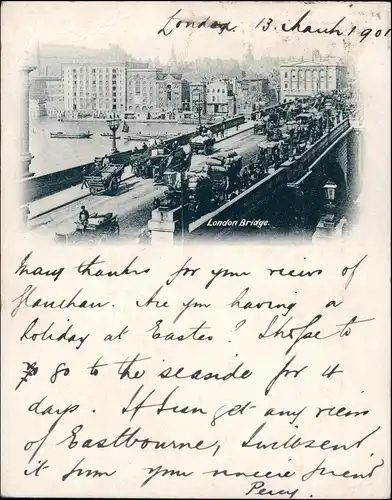 London. 13. March 1901
London Bridge.
Many thanks for your views of
Are you having a
holiday at Easter? I hope to
go to the seaside for 4
days. If I can get any views
of Eastbourne, I will send
it from your sincere friend
Percy.